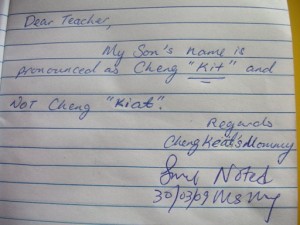 Dear Teacher,
My Son's name is
pronounced as Cheng "Kit" and
Not Cheng "Kiat".
Regards
Cheng Keat's Mommy
Noted
30/03/09 Ms Ng